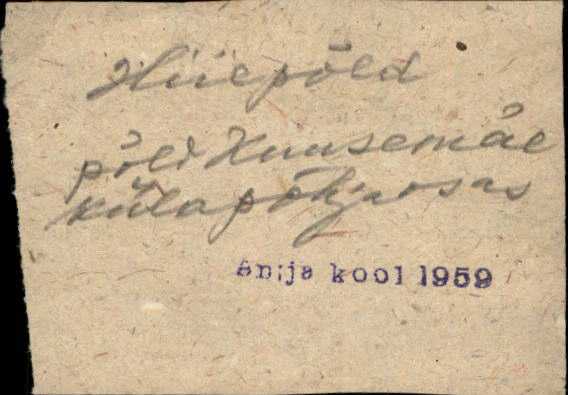 Hiiepõld
põld Kuusemäe
küla põhjaosas
An;ja kool 1959